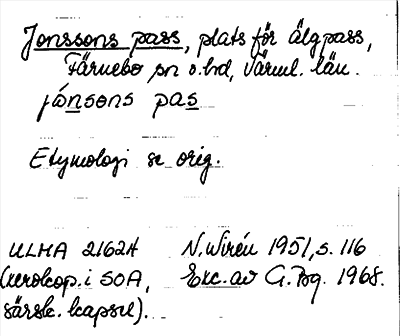 Jonssons pass, plats för älgpass,
Färnebo sn o. hd, Värml. län.
jónsons pas
Etymologi se orig.
ULMA 21624 N. Wirén 1951, s. 116
(xerokop. i SOA, Exc. av G. Bg. 1968.
särsk. kapsel).